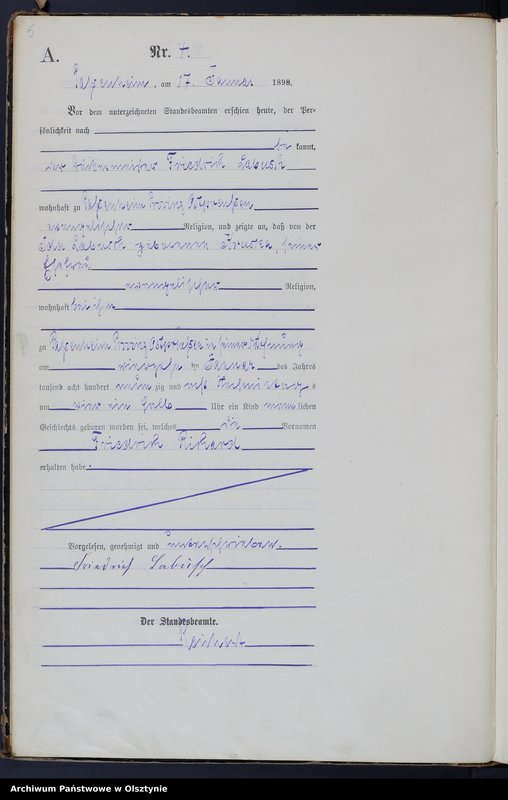 A.
Nr. 4.
Passenheim, am 17. Januar 1898.
Vor dem unterzeichneten Standesbeamten erschien heute, der Per-
sönlichkeit nach
be kannt,
der Friedrich Labusch
wohnhaft zu Passenheim Provinz Ostpreußen
evangelischer Religion, und zeigte an, daß von der
Ida Labusch geborenen seiner
Ehefrau
evangelischer Religion,
wohnhaft bei ihm
zu Passenheim Provinz Ostpreußen in seiner Wohnung
am vierzehn ten Januar des Jahres
tausend acht hundert neun zig und acht Nachmittag s
um vier ein halb Uhr ein Kind männ lichen
Geschlechts geboren worden sei, welches die Vornamen
Friedrich Richard
erhalten habe.
Vorgelesen, genehmigt und unterschrieben.
Friedrich Labusch
Der Standesbeamte.
Archiwum Państwowe w Olsztynie